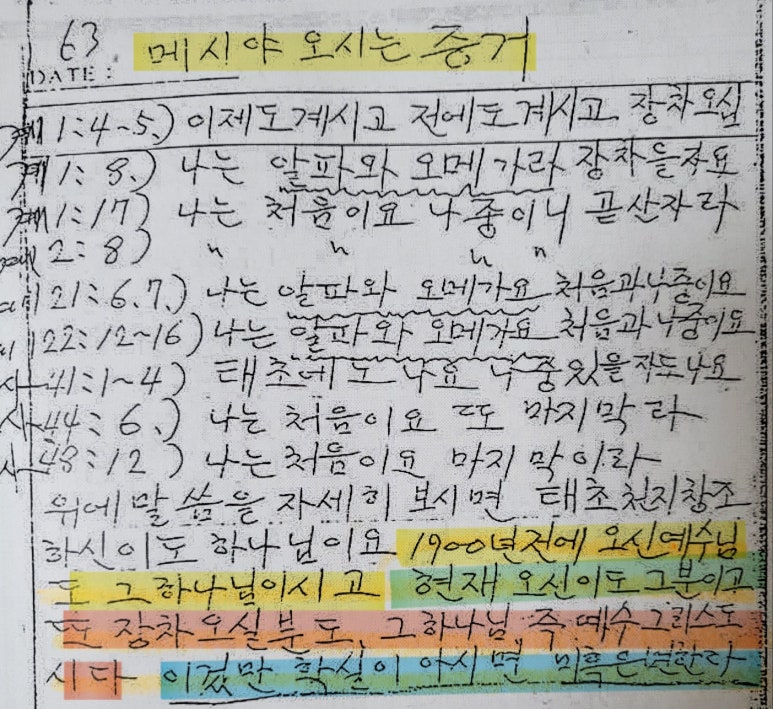 63 메시야 오시는 증거
DATE:
계 1:4~5.) 이제도 계시고 전에도 계시고 장차 오실
계 1:8.) 나는 알파와 오메가라 장차올자요
계 1:17) 나는 처음이요 나중이니 곧 산자라
계 2:8) " " " "
계 21:6.7.) 나는 알파와 오메가요 처음과 나중이요
계 22:12~16) 나는 알파와 오메가요 처음과 나중이요
사 41:1~4) 태초에도 나요 나중있을 자도 나요
사 44:6.) 나는 처음이요 또 마지막라
사 48:12) 나는 처음이요 마지막이라
위에 말씀을 자세히 보시면 태초천지창조
하신이도 하나님이요 1900년전에 오신예수님
도 그하나님이시고 현재 오신이도 그분이고
또 장차오실분도, 그하나님, 즉 예수그리스도
시다 이것만 확실이 아시면 미혹은면한다